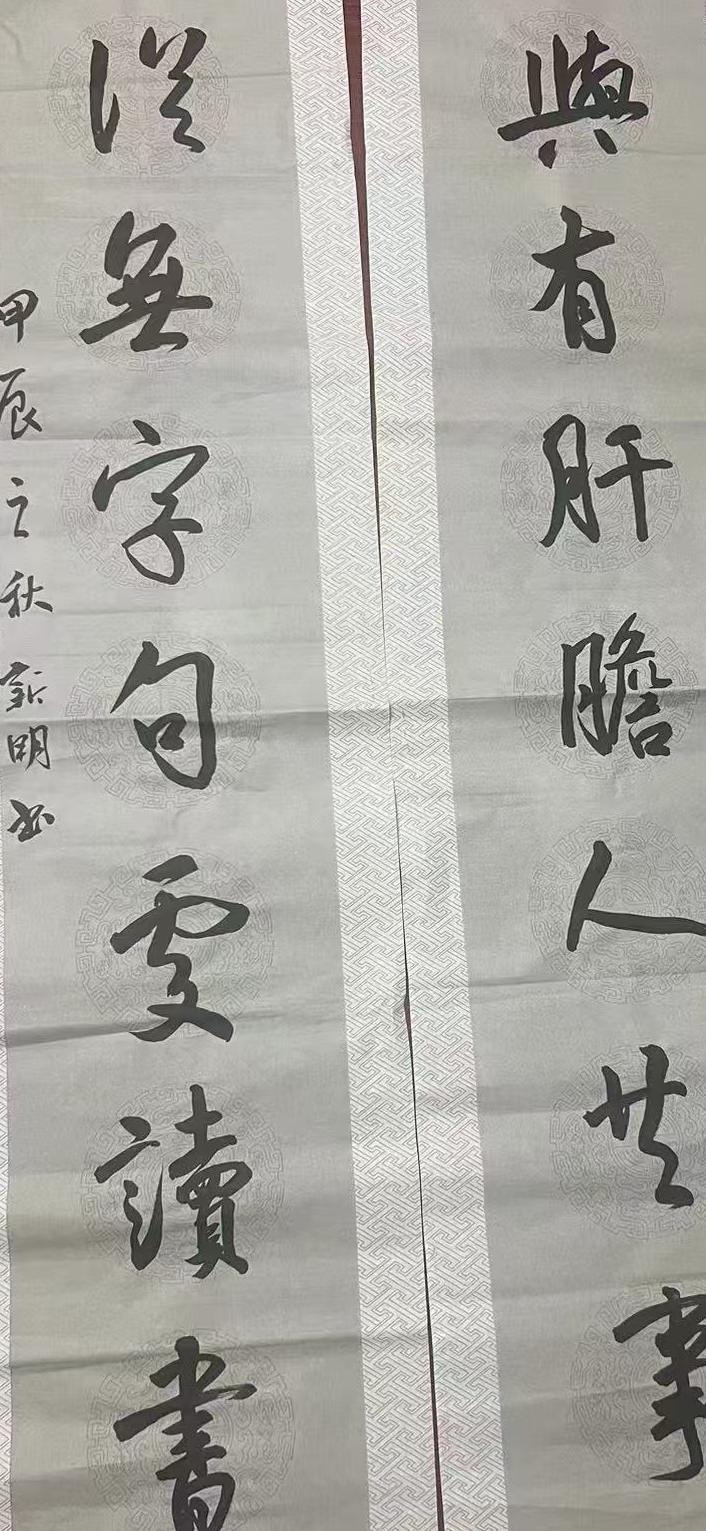 與有肝膽人共事
從無字句處讀書
甲辰之秋新明書